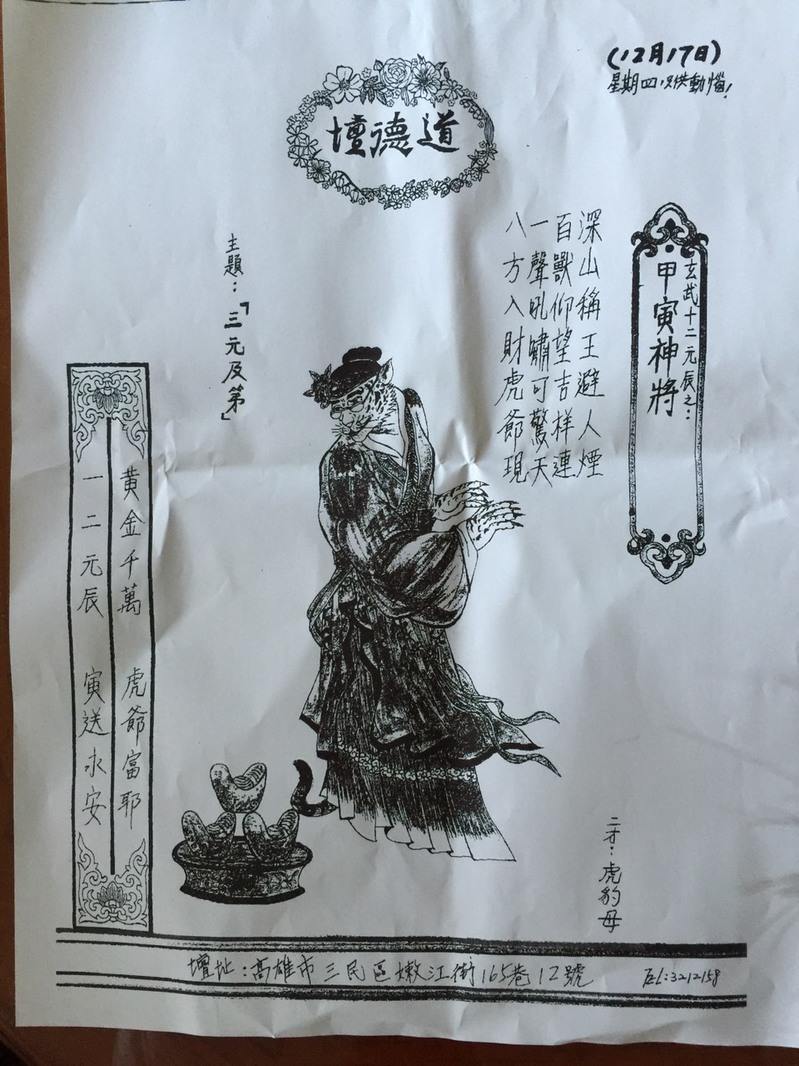 (12月17日)
星期四,只供動腦!
道德壇
玄武十二元辰之:
甲寅神將
深山稱王避人煙
百獸仰望吉祥連
一聲吼嘯可驚天
八方入財虎爺現
主題:「三元及第」
黃金千萬 虎爺富耶
一二元辰 寅送永安
二才:虎豹母
壇址:高雄市三民區嫩江街165巷12號
TEL:3212158